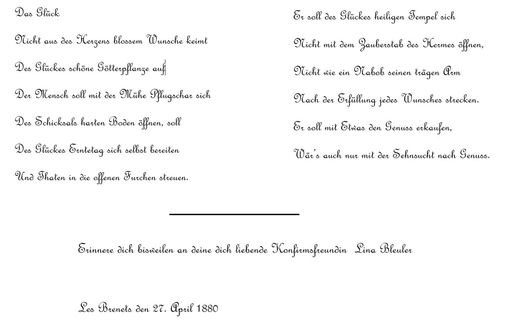 Das Glück
Nicht aus des Herzens blossem Wunsche keimt
Des Glückes schöne Götterpflanze auf
Der Mensch soll mit der Mühe Pflugschar sich
Des Schicksals harten Boden öffnen, soll
Des Glückes Erntetag sich selbst bereiten
Und Thaten in die offenen Furchen streuen.
Er soll des Glückes heiligen Tempel sich
Nicht mit dem Zauberstab des Hermes öffnen,
Nicht wie ein Nabob seinen trägen Arm
Nach der Erfüllung jedes Wunsches strecken.
Er soll mit Etwas den Genuss erkaufen,
Wär's auch nur mit der Sehnsucht nach Genuss.
Erinnere dich bisweilen an deine dich liebende Konfirmsfreundin Lina Bleuler
Les Brenets den 27. April 1880